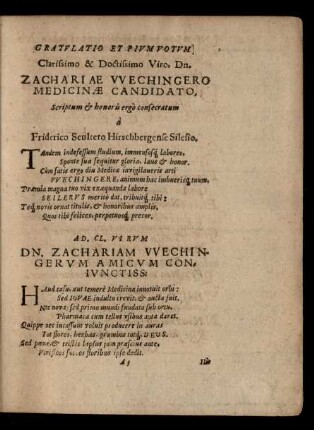 GRATVLATIO ET PIVM VOTVM
Clarissimo & Doctissimo Viro, Dn.
ZACHARIAE VVECHINGERO
MEDICINÆ CANDIDATO,
Scriptum & honoris ergò consecratum
à
Friderico Scultero Hirschbergense Silesio.
TAndem indefessum studium, immensosq́; labores,
Sponte sua sequitur gloria, laus & honor.
Cùm satis ergo diu Medicæ invigilaveris arti
VVECHINGERE, animum hac imbuerisq́; tuum,
Præmia magna tuo vix exæquanda labore
SEILERVS meritò dat, tribuitq́; tibi:
Teq́; novis ornat titulis, & honoribus amplis,
Quos tibi felices, perpetuosq́; precor.
AD. CL. VIRVM
DN. ZACHARIAM VVECHIN-
GERVM AMICVM CON.
IVNCTISS:
HAud casu, aut temerè Medicina innotuit orbi:
Sed IOVAE indultu crevit, & aucta fuit.
Nec nova: sed primo mundi fundata sub ortu.
Pharmaca cum tellus usibus data daret.
Quippe nec incassum voluit producere in auras
Tot flores, herbas, gramina totq́; DEUS.
Sed pone, & tectis
Viribus floribus ipse dedit.
A 3